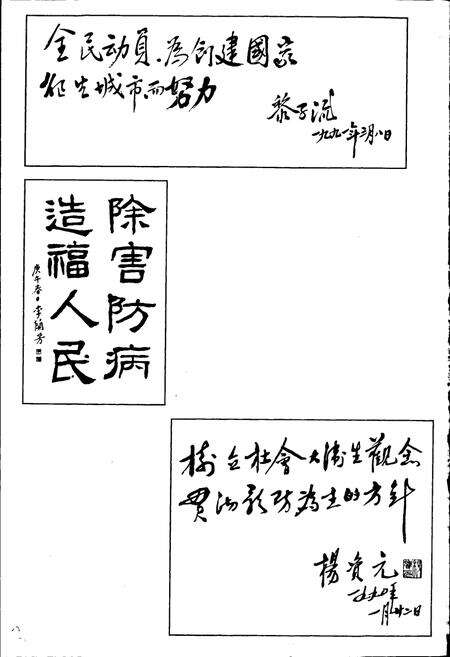 全民动員，為创建國家
衛生城市而努力
黎子流
一九九一年三月八日
除害防病
造福人民
庚午春日李蘭芳
樹立社會大衛生觀念
贯彻预防為主的方針
楊資元
一九九〇年
一月廿二日